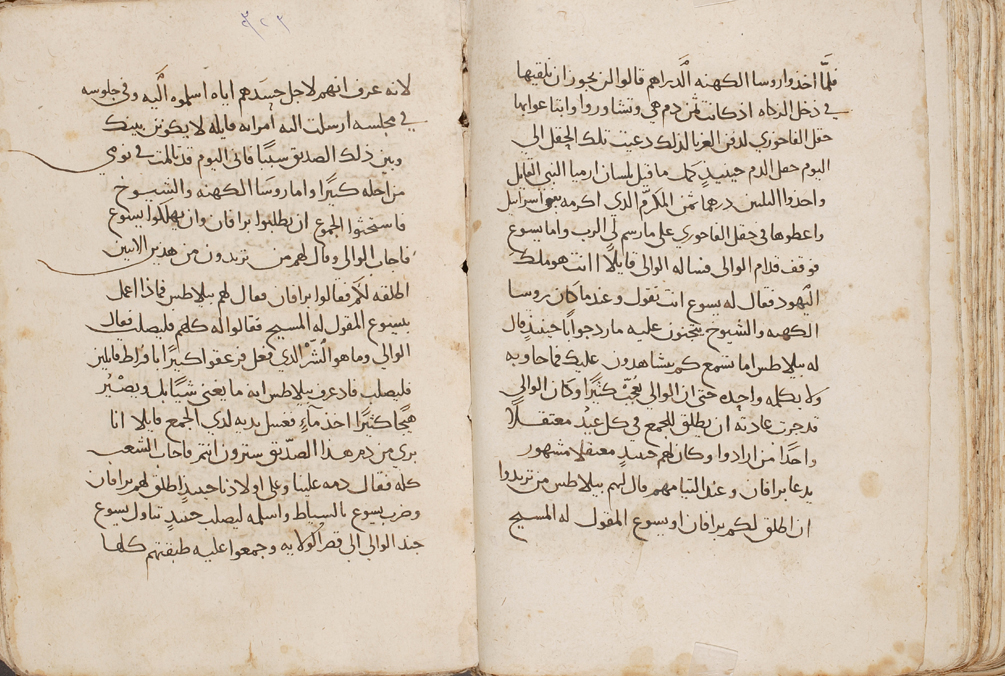 فلما اخذوا روسا الكهنه الدراهم قالوا لن يجوز ان نلقيها
في دخل الزكاه اذ كانت ثمن دم هي وتشاوروا وابتاعوا بها
حقل الفاخوري لدفن الغربا لذلك دعيت تلك الحقل الي
اليوم حقل الدم حينيد كمل ما قيل بلسان ارميا النبي القايل
واخدوا الثلثين درهما ثمن المكرم الذي اكرمه بني اسرايل
واعطوها في حقل الفاخوري علي ما رسم لي الرب واما يسوع
فوقف قدام الوالي فساله الوالي قايلا اانت هو ملك
اليهود فقال له يسوع انت تقول وعندما كان روسا
الكهنه والشيوخ يتجنون عليه ما رد جوابا حينيد قال
له بيلاطس اما تسمع كم يشاهدون عليك فما جاوبه
ولا بكلمه واحده حتي ان الوالي تعجب كثيرا وكان الوالي
قد جرت عادته ان يطلق للجمع في كل عيد معتقلا
واحدا من ارادوا وكان لهم حينيد معتقلا مشهور
يدعا برافان وعند التيامهم قال لهم بيلاطس من تريدوا
ان اطلق لكم برافان او يسوع المقول له المسيح
٣٢٣
لانه عرف انهم لاجل حسدهم اياه اسلموه اليه وفي جلوسه
في مجلسه ارسلت اليه امراته قايله لا يكونن بينك
وبين ذلك الصديق سببا فاني اليوم قد تالمت في نومي
من اجله كثيرا واما روسا الكهنه والشيوخ
فاستحثوا الجموع ان يطلبوا برافان وان يهلكوا يسوع
فاجاب الوالي وقال لهم من تريدون من هدين الاتنين
اطلقه لكم فقالوا برافان فقال لهم بيلاطس فماذا اعمل
بيسوع المقول له المسيح فقالوا له كلهم فليصلب فقال
الوالي وما هو الشر الذي فعل فزعقوا كثيرا افراط قايلين
فليصلب فاد عرف بيلاطس انه ما يغني شيا بل ويصير
هيجا كثيرا اخذ ماء فغسل يديه لدي الجمع قايلا انا
بري من دم هدا الصديق سترون انتم فاجاب الشعب
كله فقال دمه علينا وعلي اولادنا حينيد اطلق لهم برافان
وضرب يسوع بالسياط واسلمه ليصلب حينيد تناول يسوع
جند الوالي الي قصر الولايه وجمعوا عليه طبقتهم كلها